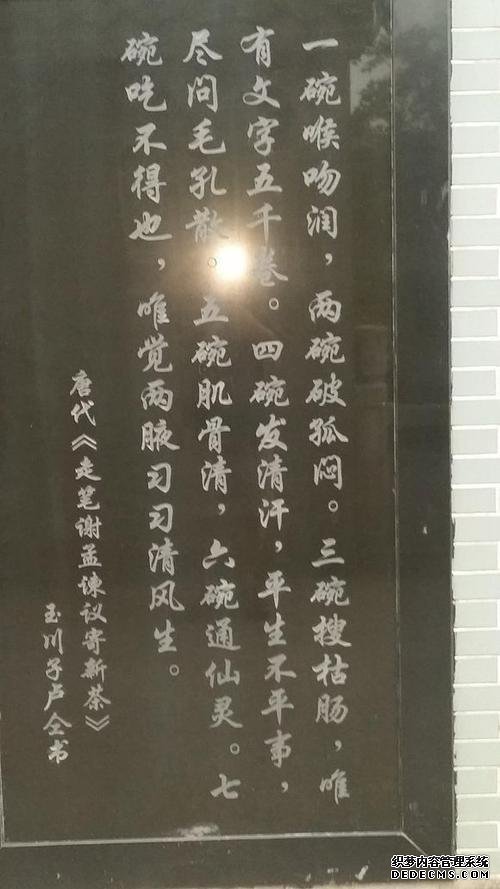 一碗喉吻润，两碗破孤闷。三碗搜枯肠，唯
有文字五千卷。四碗发清汗，平生不平事，
尽问毛孔散。五碗肌骨清，六碗通仙灵。七
碗吃不得也，唯觉两腋习习清风生。
唐代《走笔谢孟谏议寄新茶》
玉川子卢仝书
织梦内容管理系统
DEDECMS.COM